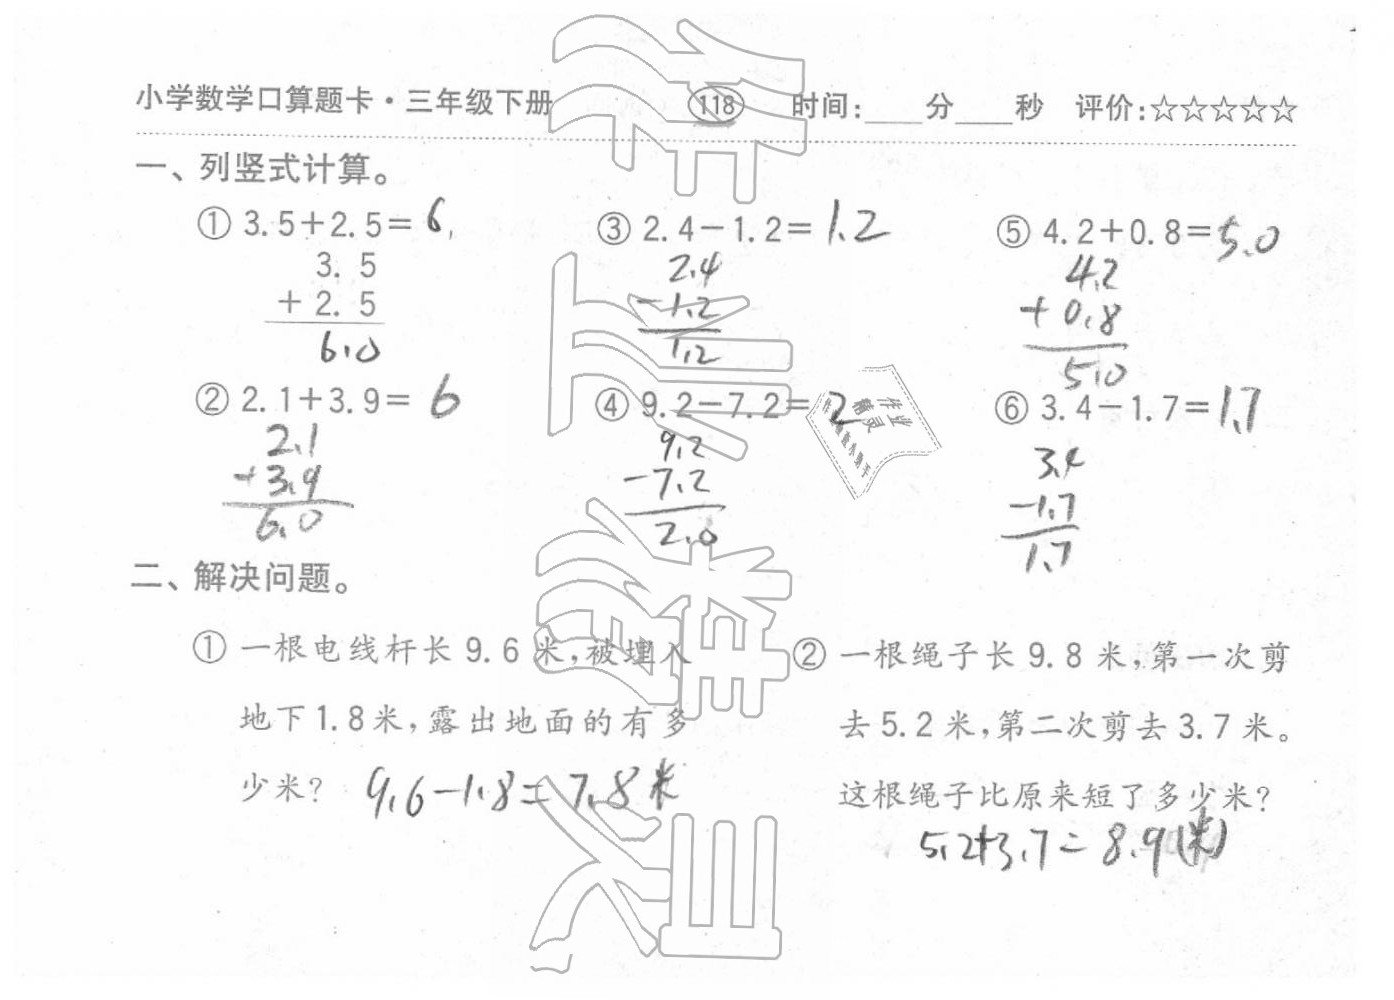 小学数学口算题卡·三年级下册 118 时间:____分____秒 评价:☆☆☆☆☆
一、列竖式计算。
① 3.5+2.5= 6
3.5
+ 2.5
6.0
② 2.1+3.9= 6
2.1
+3.9
6.0
③ 2.4-1.2= 1.2
2.4
-1.2
1.2
④ 9.2-7.2= 2
9.2
-7.2
2.0
⑤ 4.2+0.8= 5.0
4.2
+ 0.8
5.0
⑥ 3.4-1.7= 1.7
3.4
-1.7
1.7
作业
精灵
二、解决问题。
① 一根电线杆长 9.6 米,被埋入
地下1.8米,露出地面的有多
少米? 9.6-1.8=7.8米
② 一根绳子长 9.8 米,第一次剪
去 5.2 米,第二次剪去 3.7 米。
这根绳子比原来短了多少米?
5.2+3.7=8.9(米)